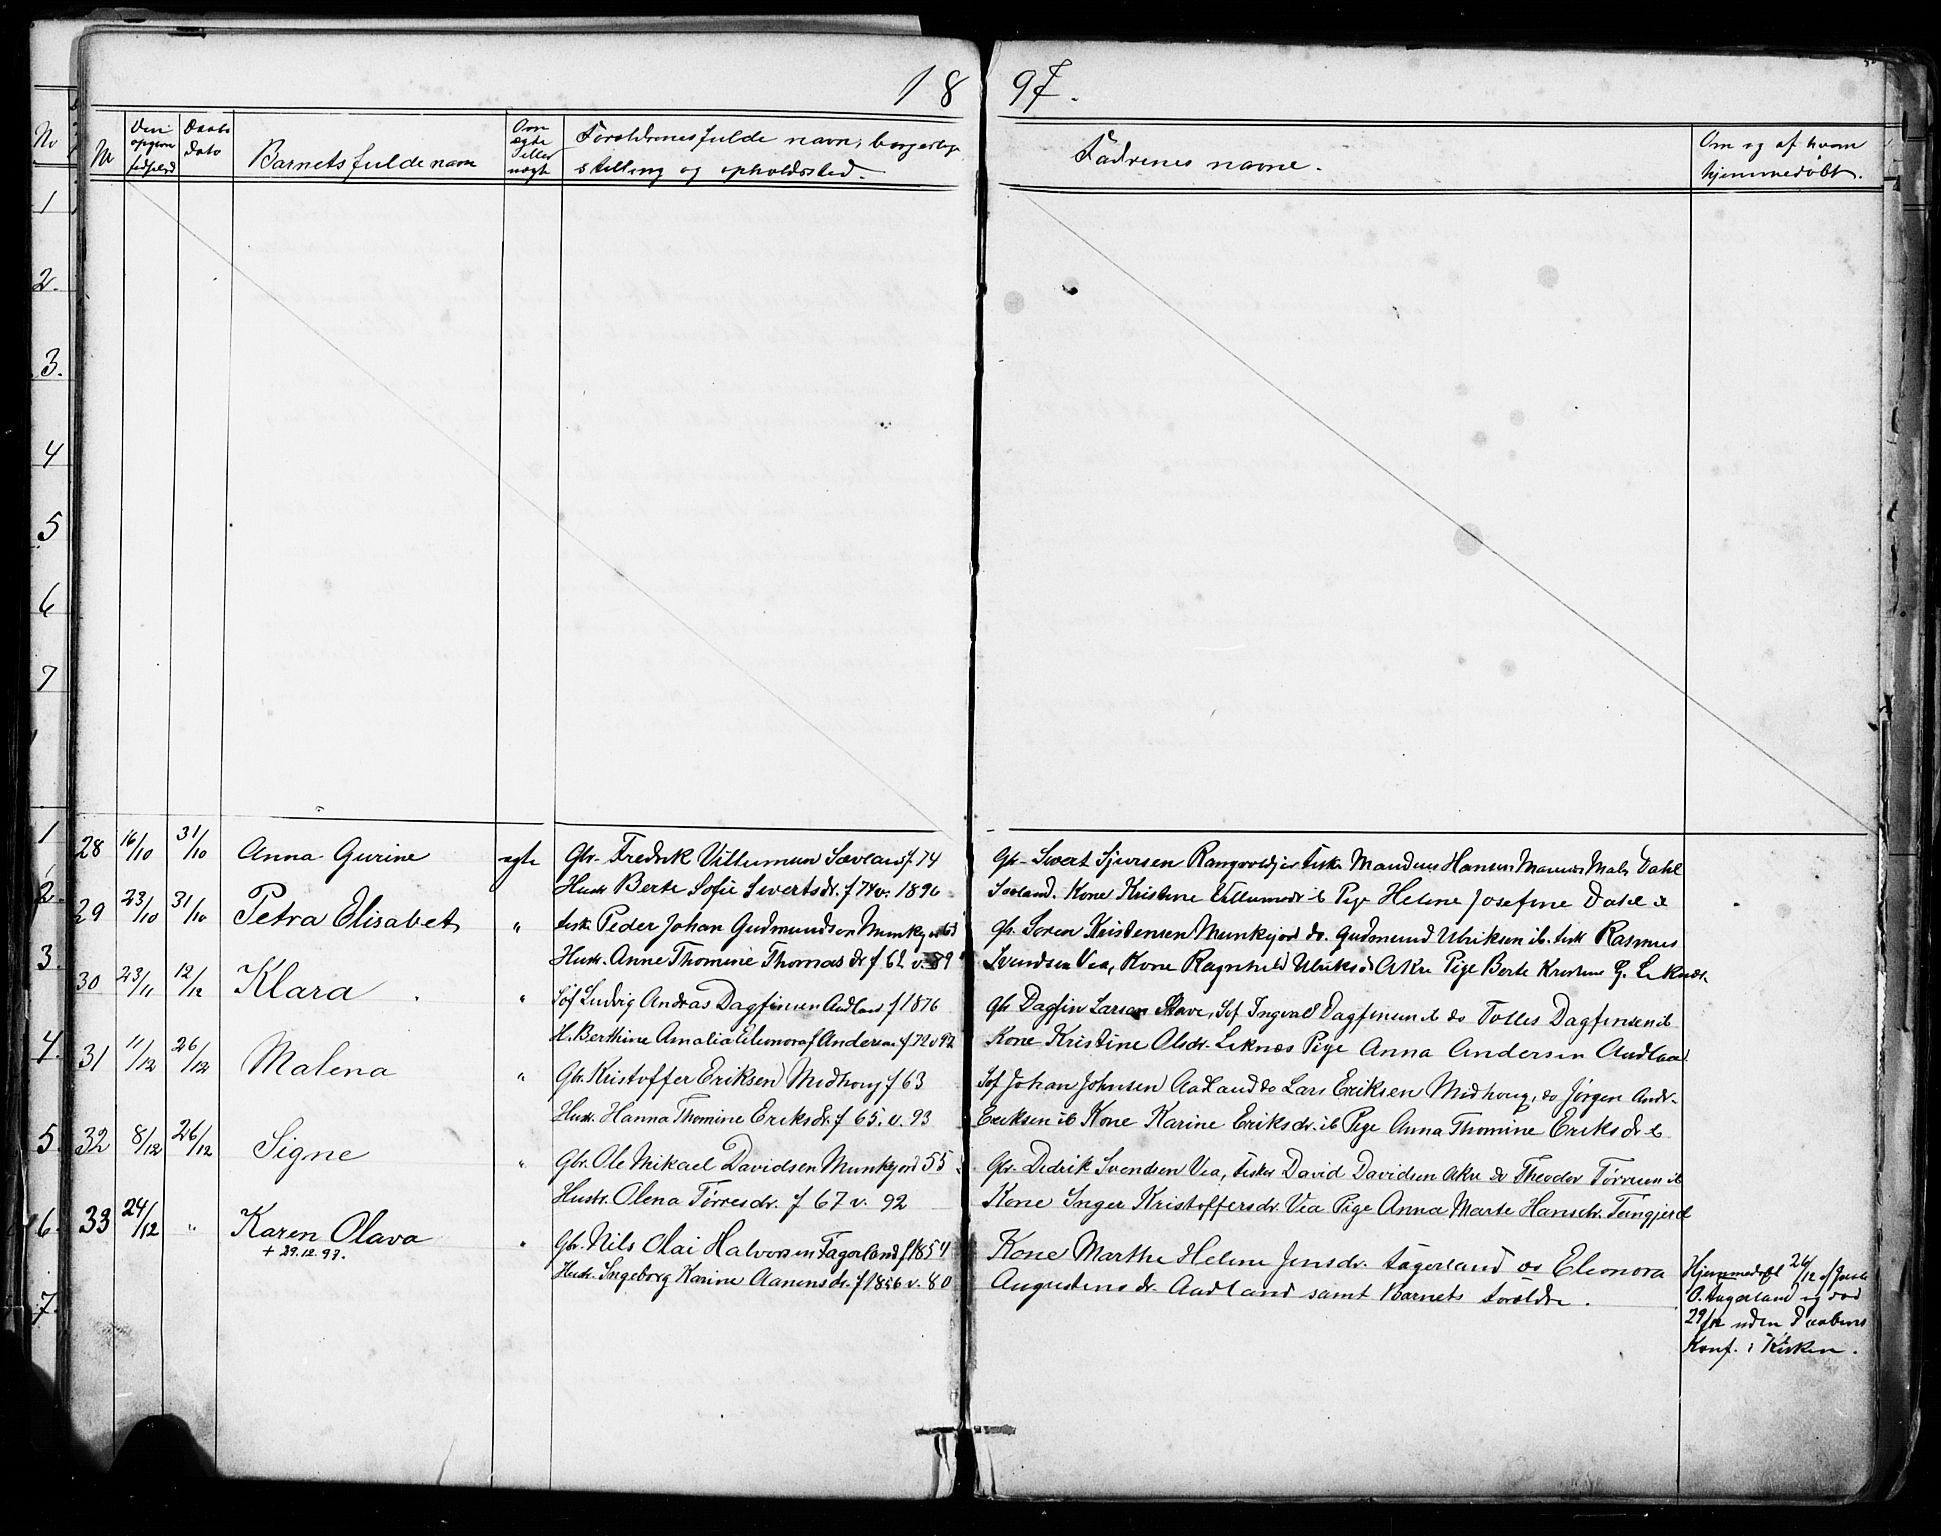 1897.
No
No
Den opgivne fødselsd
Daabs Dato
Barnets fulde navn
Om ægte eller uægte
Forældrenes fulde navn, borgerlige stilling og opholdssted.
Fadrenes navne.
Om og af hvem hjemmedøbt.
1
2.
3.
4
5
6
7
1
28 16/10 31/10 Anna Gurine ægte Gbr. Fredrik Villumsen Sævland f. 74
Gbr. Sivert Sjursen Hansen Dahl
Hustr. Berte Sofie Sivertsdr. f. 74 v. 1896
Sævland. Kone Kristine Villumsdr ib Pige Helene Josefine Dahl ib
2.
29 23/10 31/10 Petra Elisabet " Fisk. Peder Johan Gudmundsen Munkejord 63
Gbr. Søren Kristensen Munkejord do. Gudmund Ulriksen ib. Fisk Rasmus
Hustr. Anne Thomine Thomasdr f. 62 v. 89
Svendsen Vea, Kone Ragnhild Ulriksd Akre Pige Berte Kristine G. Leknæs.
3.
30 23/11 12/12 Klara " Søf Ludvig Andreas Dagfinsen Aadland f 1876
Gbr Dagfin Larsen Stave, Søf Ingvald Dagfinsen ib do Tolles Dagfinsen ib
H. Berthine Amalia Eleonora f Andersen f 72 v 97
Kone Kristine Olsdr. Leknæs Pige Anna Andersen Aadland
4.
31 11/12 26/12 Malena " Gbr. Kristoffer Eriksen Midhoug f 63
Søf Johan Johnsen Aadland do Lars Eriksen Midhoug, do Jørgen Andr.
Hustr. Hanna Thomine Eriksdr. f 65. v. 93
Eriksen ib Kone Karine Eriksdr. ib Pige Anna Thomine Eriksdr ib
5.
32 8/12 26/12 Signe " Gbr. Ole Mikael Davidsen Munkejord 55
Gbr. Didrik Svendsen Vea, Fisker David Davidsen Akre do Theodor Tørresen ib
Hustr. Olena Tørresdr. f 67 v. 92
Kone Inger Kristoffersdr. Vea Pige Anna Marte Hansdr.
6.
33 24/12 " Karen Olava " Gbr. Nils Olai Halvorsen Fagerland f 1854
+ 29.12.97.
Kone Marthe Helene Jensdr. Fagerland og Eleonora
Hustr. Ingeborg Karine Aanensdr. f 1856 v. 80
Augustinsdr. Aadland samt Barnets Forældre.
7.
Hjemmedøbt 26/12 af
O. Fagerland og død
29/12 uden Daabens
Konf. i Kirken.